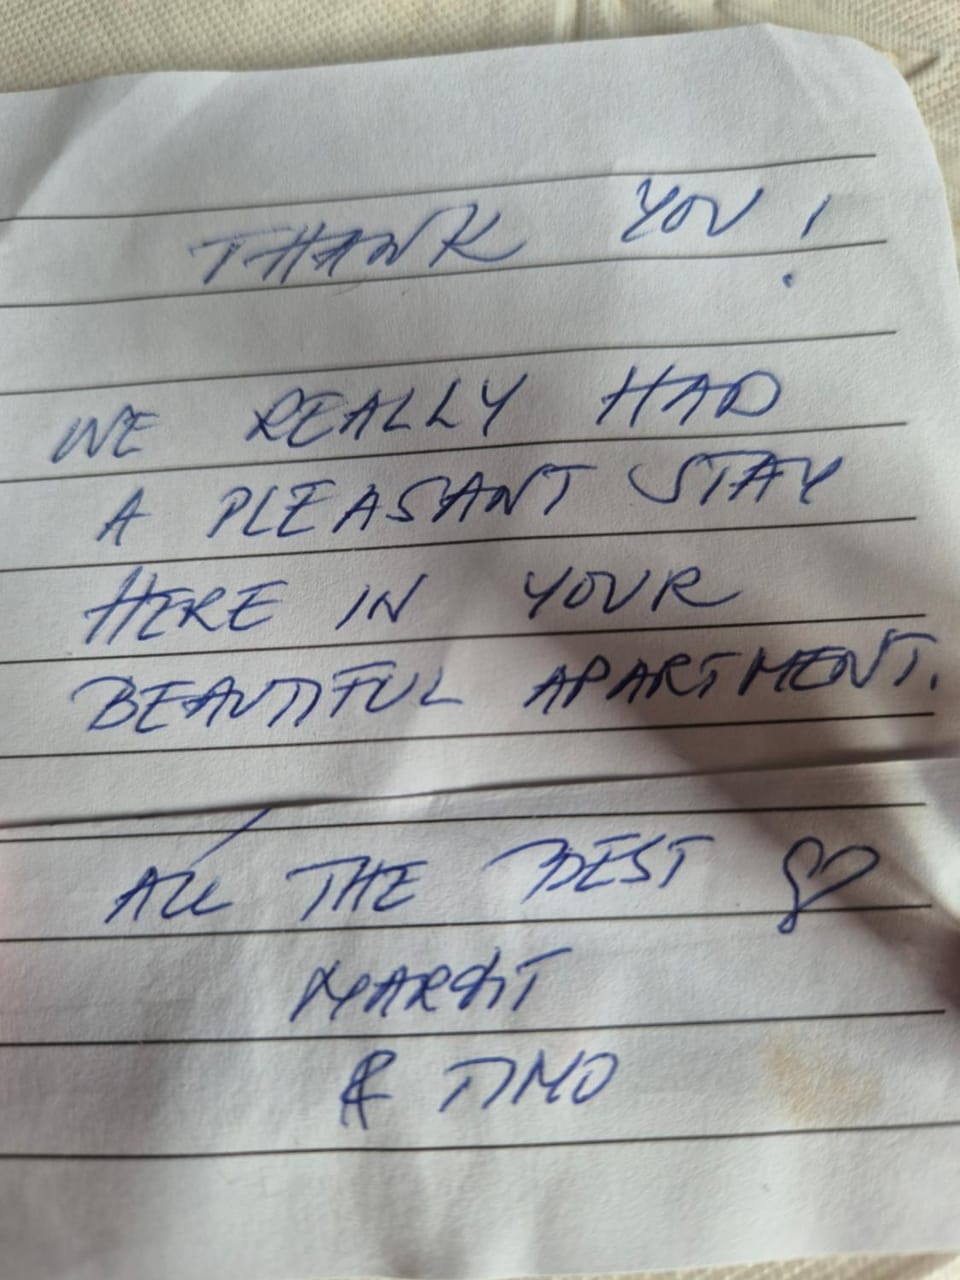 THANK YOU!
WE REALLY HAD
A PLEASANT STAY
HERE IN YOUR
BEAUTIFUL APARTMENT.
ALL THE BEST ♡
MARGIT
& TIMO